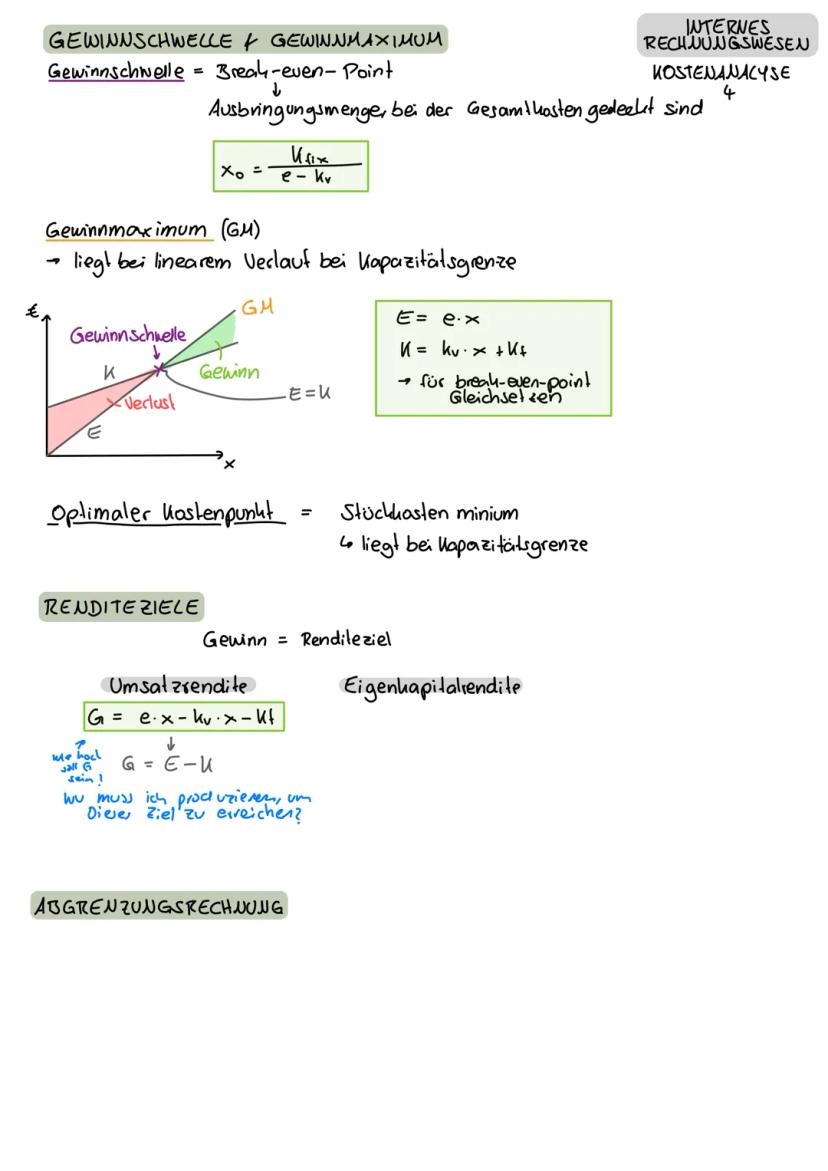 GEWINNSCHWELLE & GEWINNMAXIMUM
INTERNES
RECHNUNGSWESEN
KOSTENANALYSE
4
Gewinnschwelle = Break-even-Point
↓
Ausbringungsmenge, bei der Gesamtkosten gedeckt sind
x₀ = Kfix / e - kv
Gewinnmaximum (GM)
→ liegt bei linearem Verlauf bei Kapazitätsgrenze
€
GM
Gewinnschwelle
K
Gewinn
Verlust
E=K
E
x
E = e·x
K = kv·x + Kf
→ für break-even-point
Gleichsetzen
Optimaler Kostenpunkt = Stückkosten minium
↳ liegt bei Kapazitätsgrenze
RENDITEZIELE
Gewinn = Renditeziel
Umsatzrendite
Eigenkapitalrendite
G = e·x - kv·x - Kf
↓
G = E - K
wie hoch
soll G
sein!
muss ich produzieren, um
Ziel zu erreichen?
ABGRENZUNGSRECHNUNG